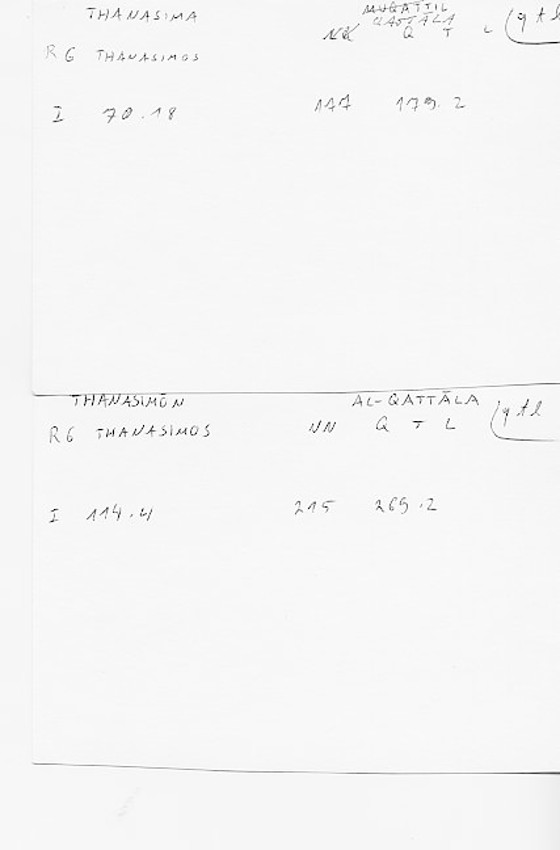 THANASIMA MUQATTIL
QATTĀLA
RG THANASIMOS NN Q T L (qtl
I 70.18 147 179.2
THANASIMŌN AL-QATTĀLA
RG THANASIMOS NN Q T L (qtl
I 114.4 215 269.2